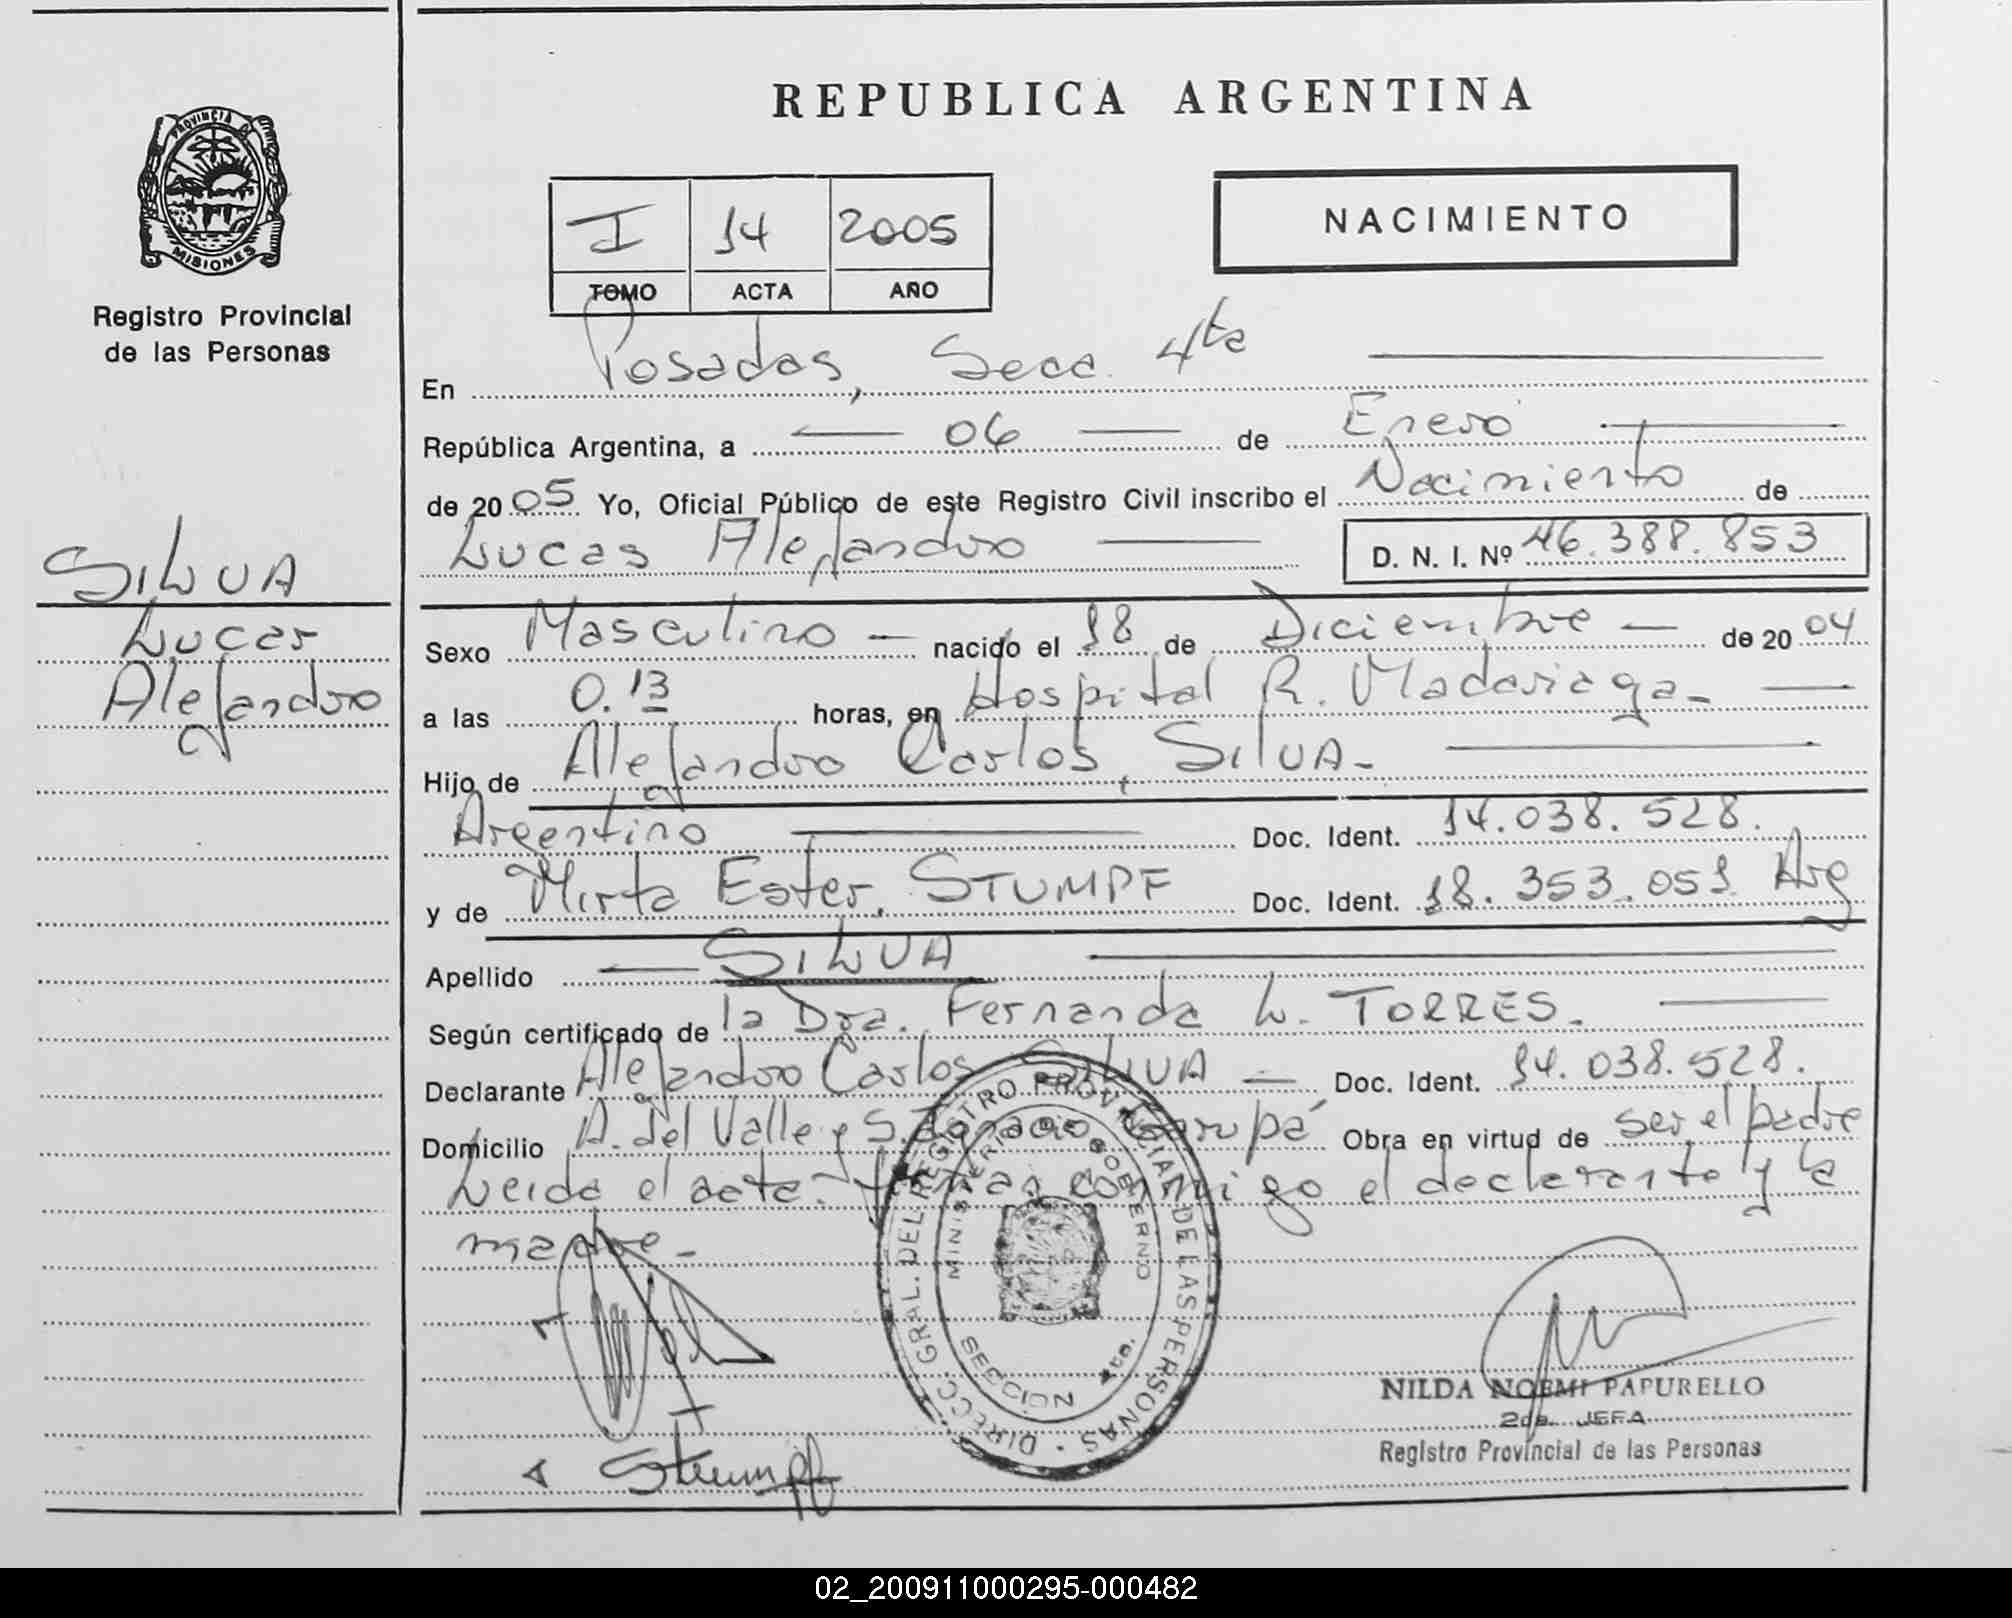 PROVINCIA DE
MISIONES
Registro Provincial
de las Personas
SILVA
Lucas
Alejandro
REPUBLICA ARGENTINA
I 14 2005
TOMO ACTA AÑO
NACIMIENTO
En Posadas, Secc. 4ta
República Argentina, a 06 de Enero
de 2005 Yo, Oficial Público de este Registro Civil inscribo el Nacimiento de
Lucas Alejandro D. N. I. Nº 46.388.853
Sexo Masculino nacido el 18 de Diciembre de 2004
a las 0.13 horas, en Hospital R. Madariaga.
Hijo de Alejandro Carlos, SILVA.
Argentino Doc. Ident. 14.038.528.
y de Mirta Ester, STUMPF Doc. Ident. 18.353.051 Arg
Apellido SILVA
Según certificado de la Dra. Fernanda L. TORRES.
Declarante Alejandro Carlos SILVA Doc. Ident. 14.038.528.
Domicilio A. del Valle y S. Ignacio Garupá Obra en virtud de ser el padre
Leida el acta. Firman conmigo el declarante y la
madre.
DIRECC. GRAL. DEL REGISTRO PROVINCIAL DE LAS PERSONAS
MINISTERIO DE GOBIERNO
SECCION 4ta.
Stumpf
NILDA NOEMI PAPURELLO
2da. JEFA
Registro Provincial de las Personas
02_200911000295-000482